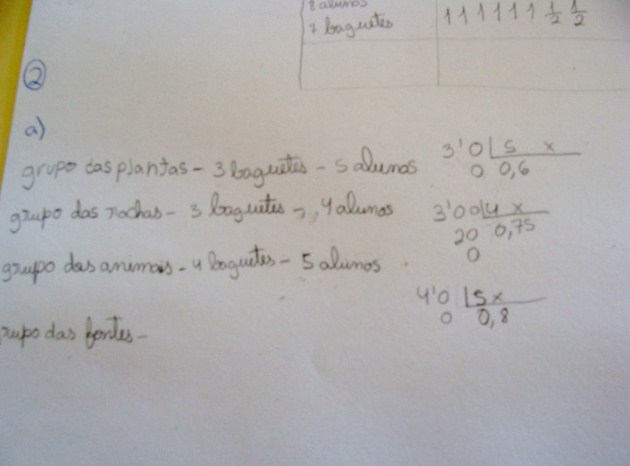 8 alunos
7 baguetes
1 1 1 1 1 1 1/2 1/2
2
a)
grupo das plantas - 3 baguetes - 5 alunos
3'0 5 x
0 0,6
grupo das rochas - 3 baguetes - 4 alunos
3'00 4 x
20 0,75
0
grupo dos animais - 4 baguetes - 5 alunos
4'0 5 x
0 0,8
grupo das fontes -